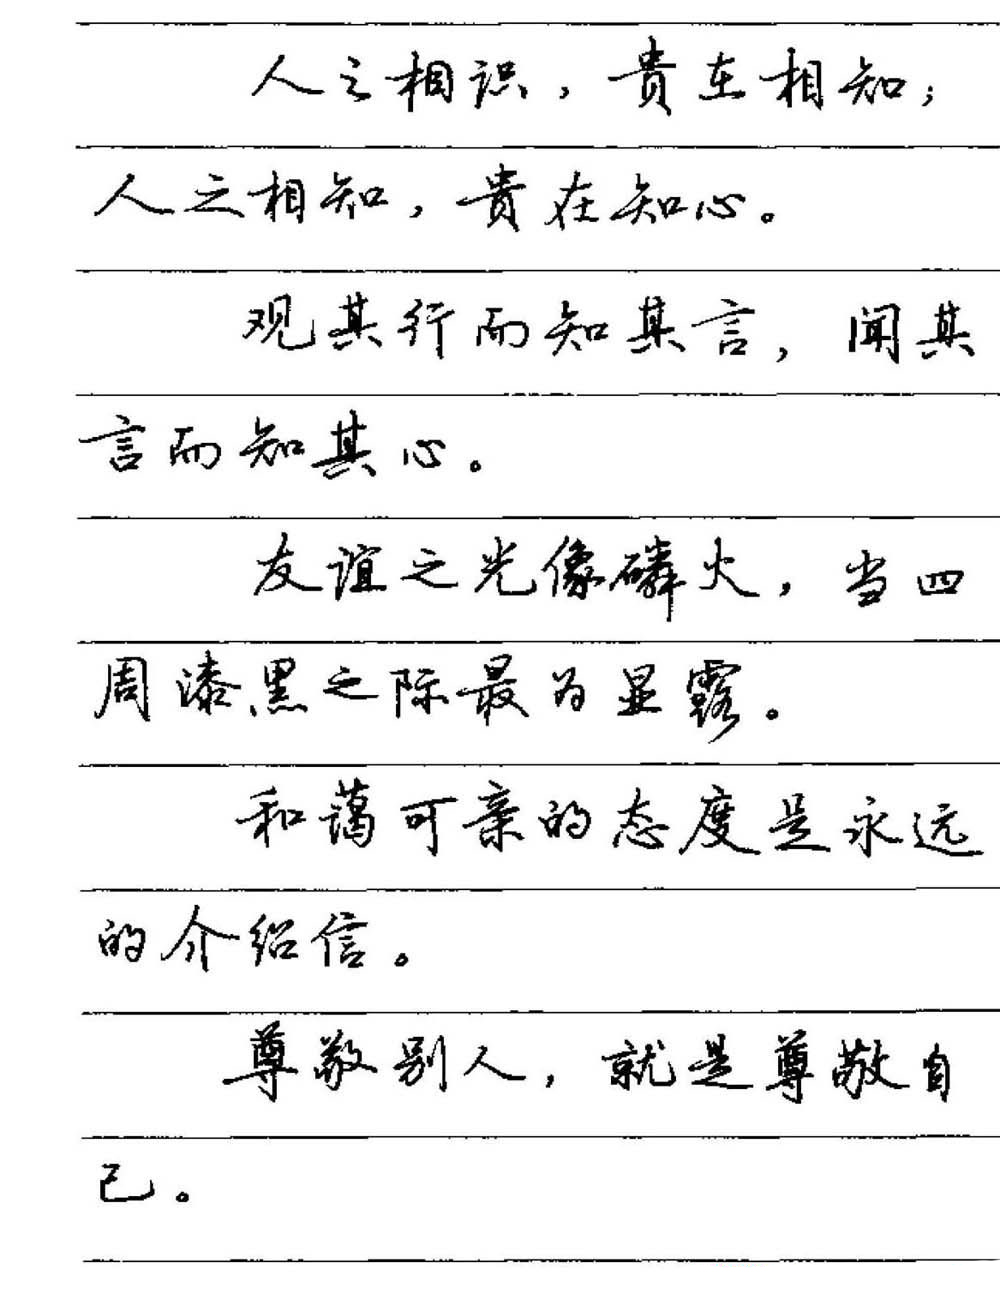 人之相识，贵在相知；
人之相知，贵在知心。
观其行而知其言，闻其
言而知其心。
友谊之光像磷火，当四
周漆黑之际最为显露。
和蔼可亲的态度是永远
的介绍信。
尊敬别人，就是尊敬自
己。